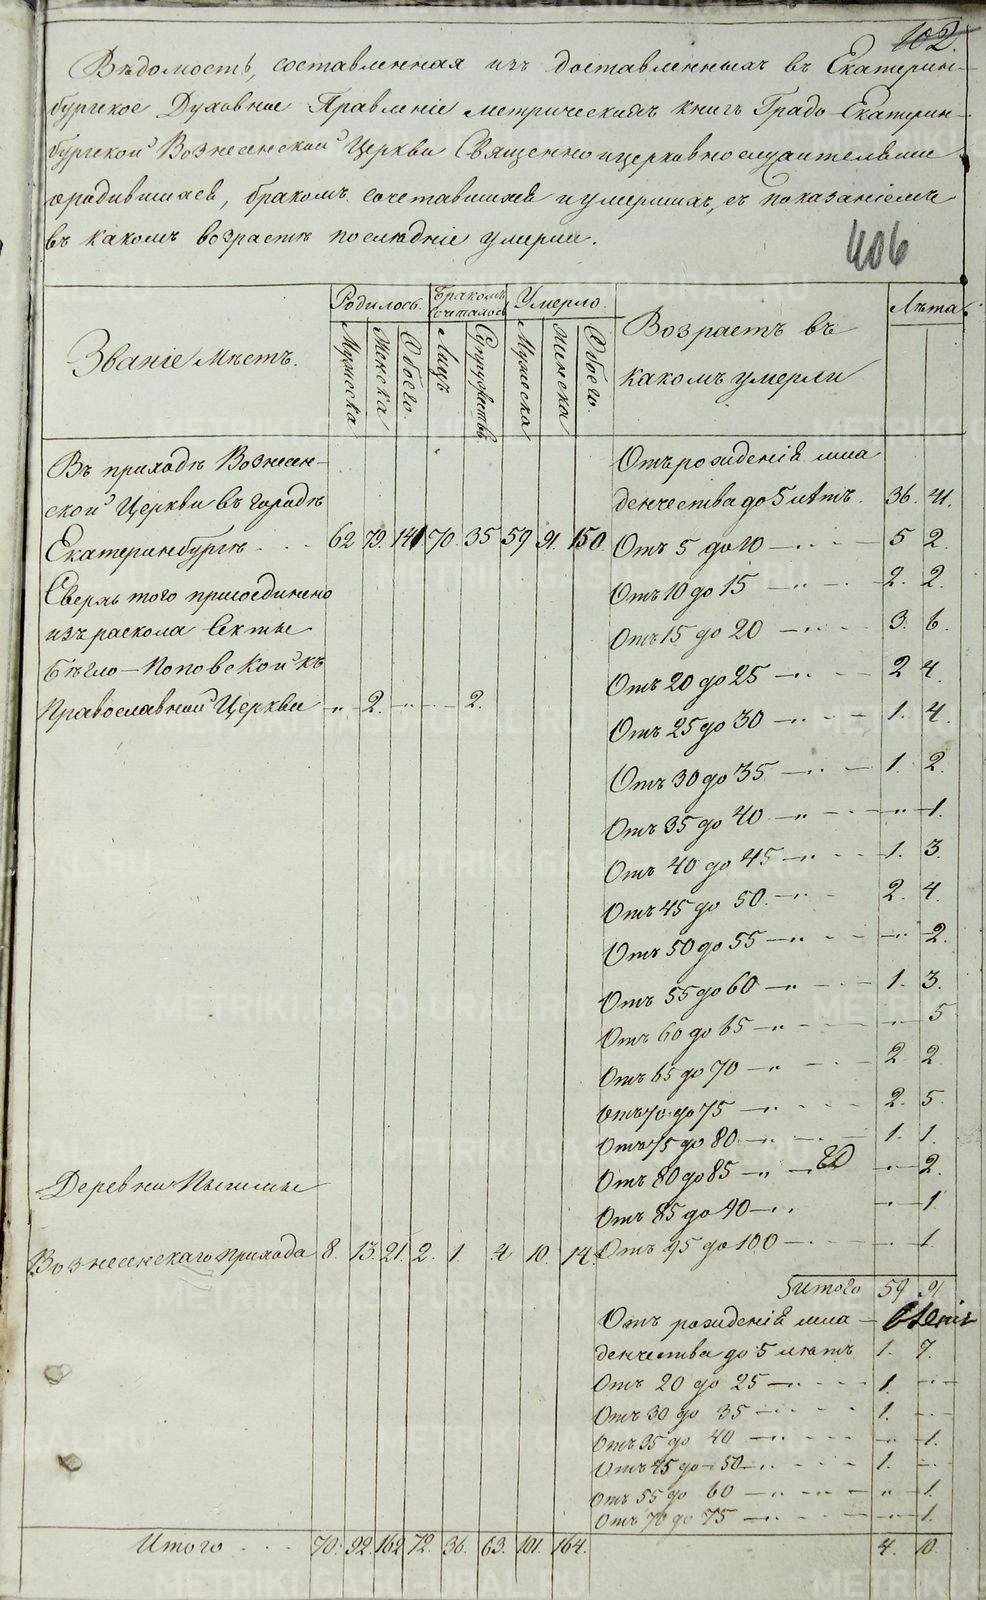 102.
Вѣдомость, составленная изъ доставленныхъ въ Екатерин-
бургское Духовное Правленіе метрическихъ книгъ Градо-Екатерин-
бургской Вознесенской Церкви Священноицерковнослужителями
ородившихся, бракомъ сочетавшихся и умершихъ, съ показаніемъ
въ какомъ возрастѣ послѣдніе умерли.
406
Званіе Мѣстъ. Родилось. Бракомъ сочеталось Умерло. Возрастъ въ какомъ умерли Лѣта
Мужеска Женска Обоего. Лицъ Супружествъ Мужеска Женска Обоего.
Въ приходѣ Вознесен- Отъ рожденія мла
ской Церкви въ городѣ денчества до 5 лѣтъ. 36. 41.
Екатеринбургѣ 62 79. 141 70. 35 59 91. 150. Отъ 5 до 10 5 2.
Сверхъ того присоединено Отъ 10 до 15 2. 2.
изъ раскола Секты Отъ 15 до 20 3. 6.
Бѣгло-Поповской къ Отъ 20 до 25 2 4.
Православной Церкви „ 2. „ 2. Отъ 25 до 30 1. 4.
Отъ 30 до 35 1. 2.
Отъ 35 до 40 „ 1.
Отъ 40 до 45 1. 3.
Отъ 45 до 50. 2. 4.
Отъ 50 до 55 „ 2.
Отъ 55 до 60 1. 3.
Отъ 60 до 65 „ 5
Отъ 65 до 70 2 2
Отъ 70 до 75 2. 5.
Отъ 75 до 80 1. 1.
Отъ 80 до 85 „ 2.
Деревни Пышмы Отъ 85 до 90 „ 1.
Вознесенскаго Прихода 8. 13. 21. 2. 1. 4 10. 14. Отъ 95 до 100 1.
Итого 59 91.
Отъ рожденія мла
денчества до 5 лѣтъ 1. 7.
Отъ 20 до 25 1.
Отъ 30 до 35 1.
Отъ 35 до 40 „ 1.
Отъ 45 до 50 1.
Отъ 55 до 60 „ 1.
Отъ 70 до 75 1.
Итого 70. 92. 162 72. 36. 63. 101. 164. 4. 10.
METRIKI.GASO-URAL.RU